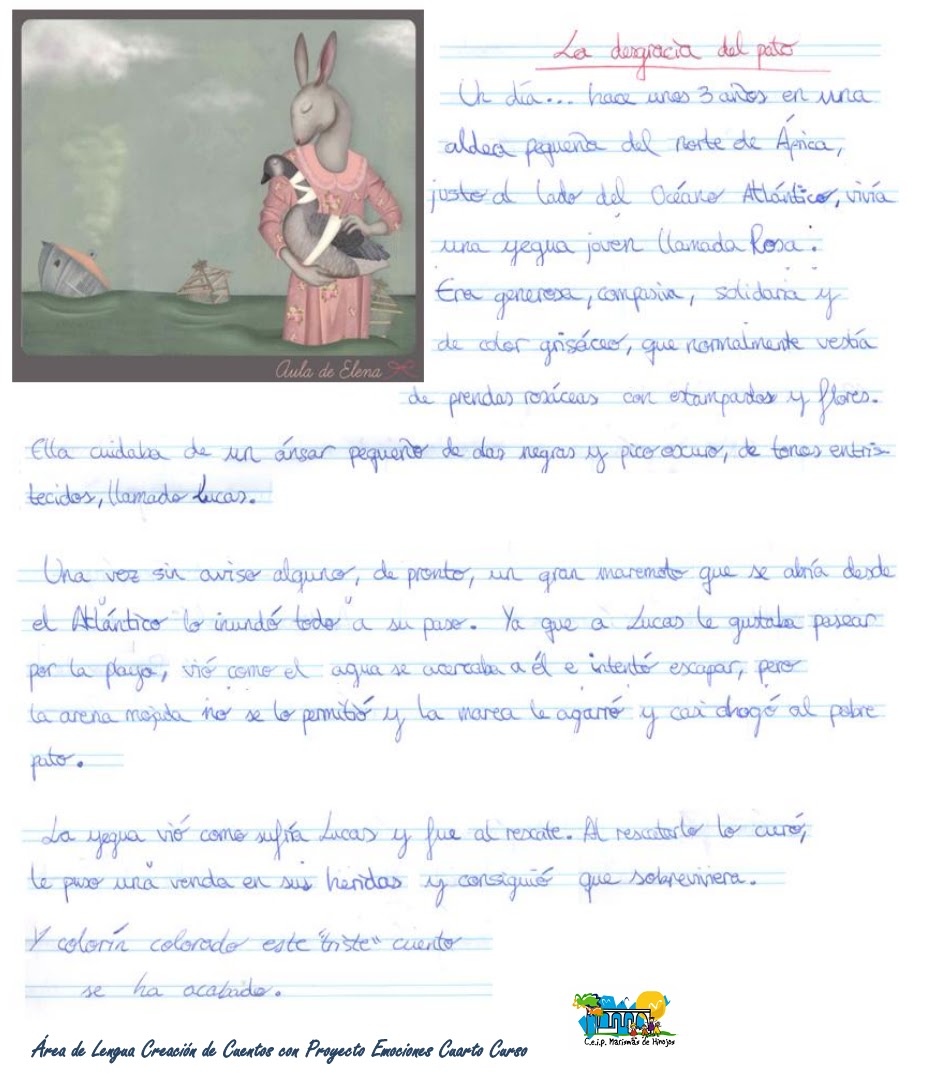 La desgracia del pato
Un día... hace unos 3 años en una
aldea pequeña del norte de África,
justo al lado del Océano Atlántico, vivía
una yegua joven llamada Rosa.
Era generosa, compasiva, solidaria y
de color grisáceo, que normalmente vestía
de prendas rosáceas con estampados y flores.
Ella cuidaba de un ánsar pequeño de alas negras y pico oscuro, de tonos entris-
tecidos, llamado Lucas.
Una vez sin aviso alguno, de pronto, un gran maremoto que se abría desde
el Atlántico lo inundó todo a su paso. Ya que a Lucas le gustaba pasear
por la playa, vió como el agua se acercaba a él e intentó escapar, pero
la arena mojada no se lo permitió y la marea le agarró y casi ahogó al pobre
pato.
La yegua vió como sufría Lucas y fue al rescate. Al rescatarlo lo curó,
le puso una venda en sus heridas y consiguió que sobreviviera.
Y colorín colorado este "triste" cuento
se ha acabado.
Aula de Elena
C.e.i.p. Marismas de Hinojos
Área de Lengua Creación de Cuentos con Proyecto Emociones Cuarto Curso